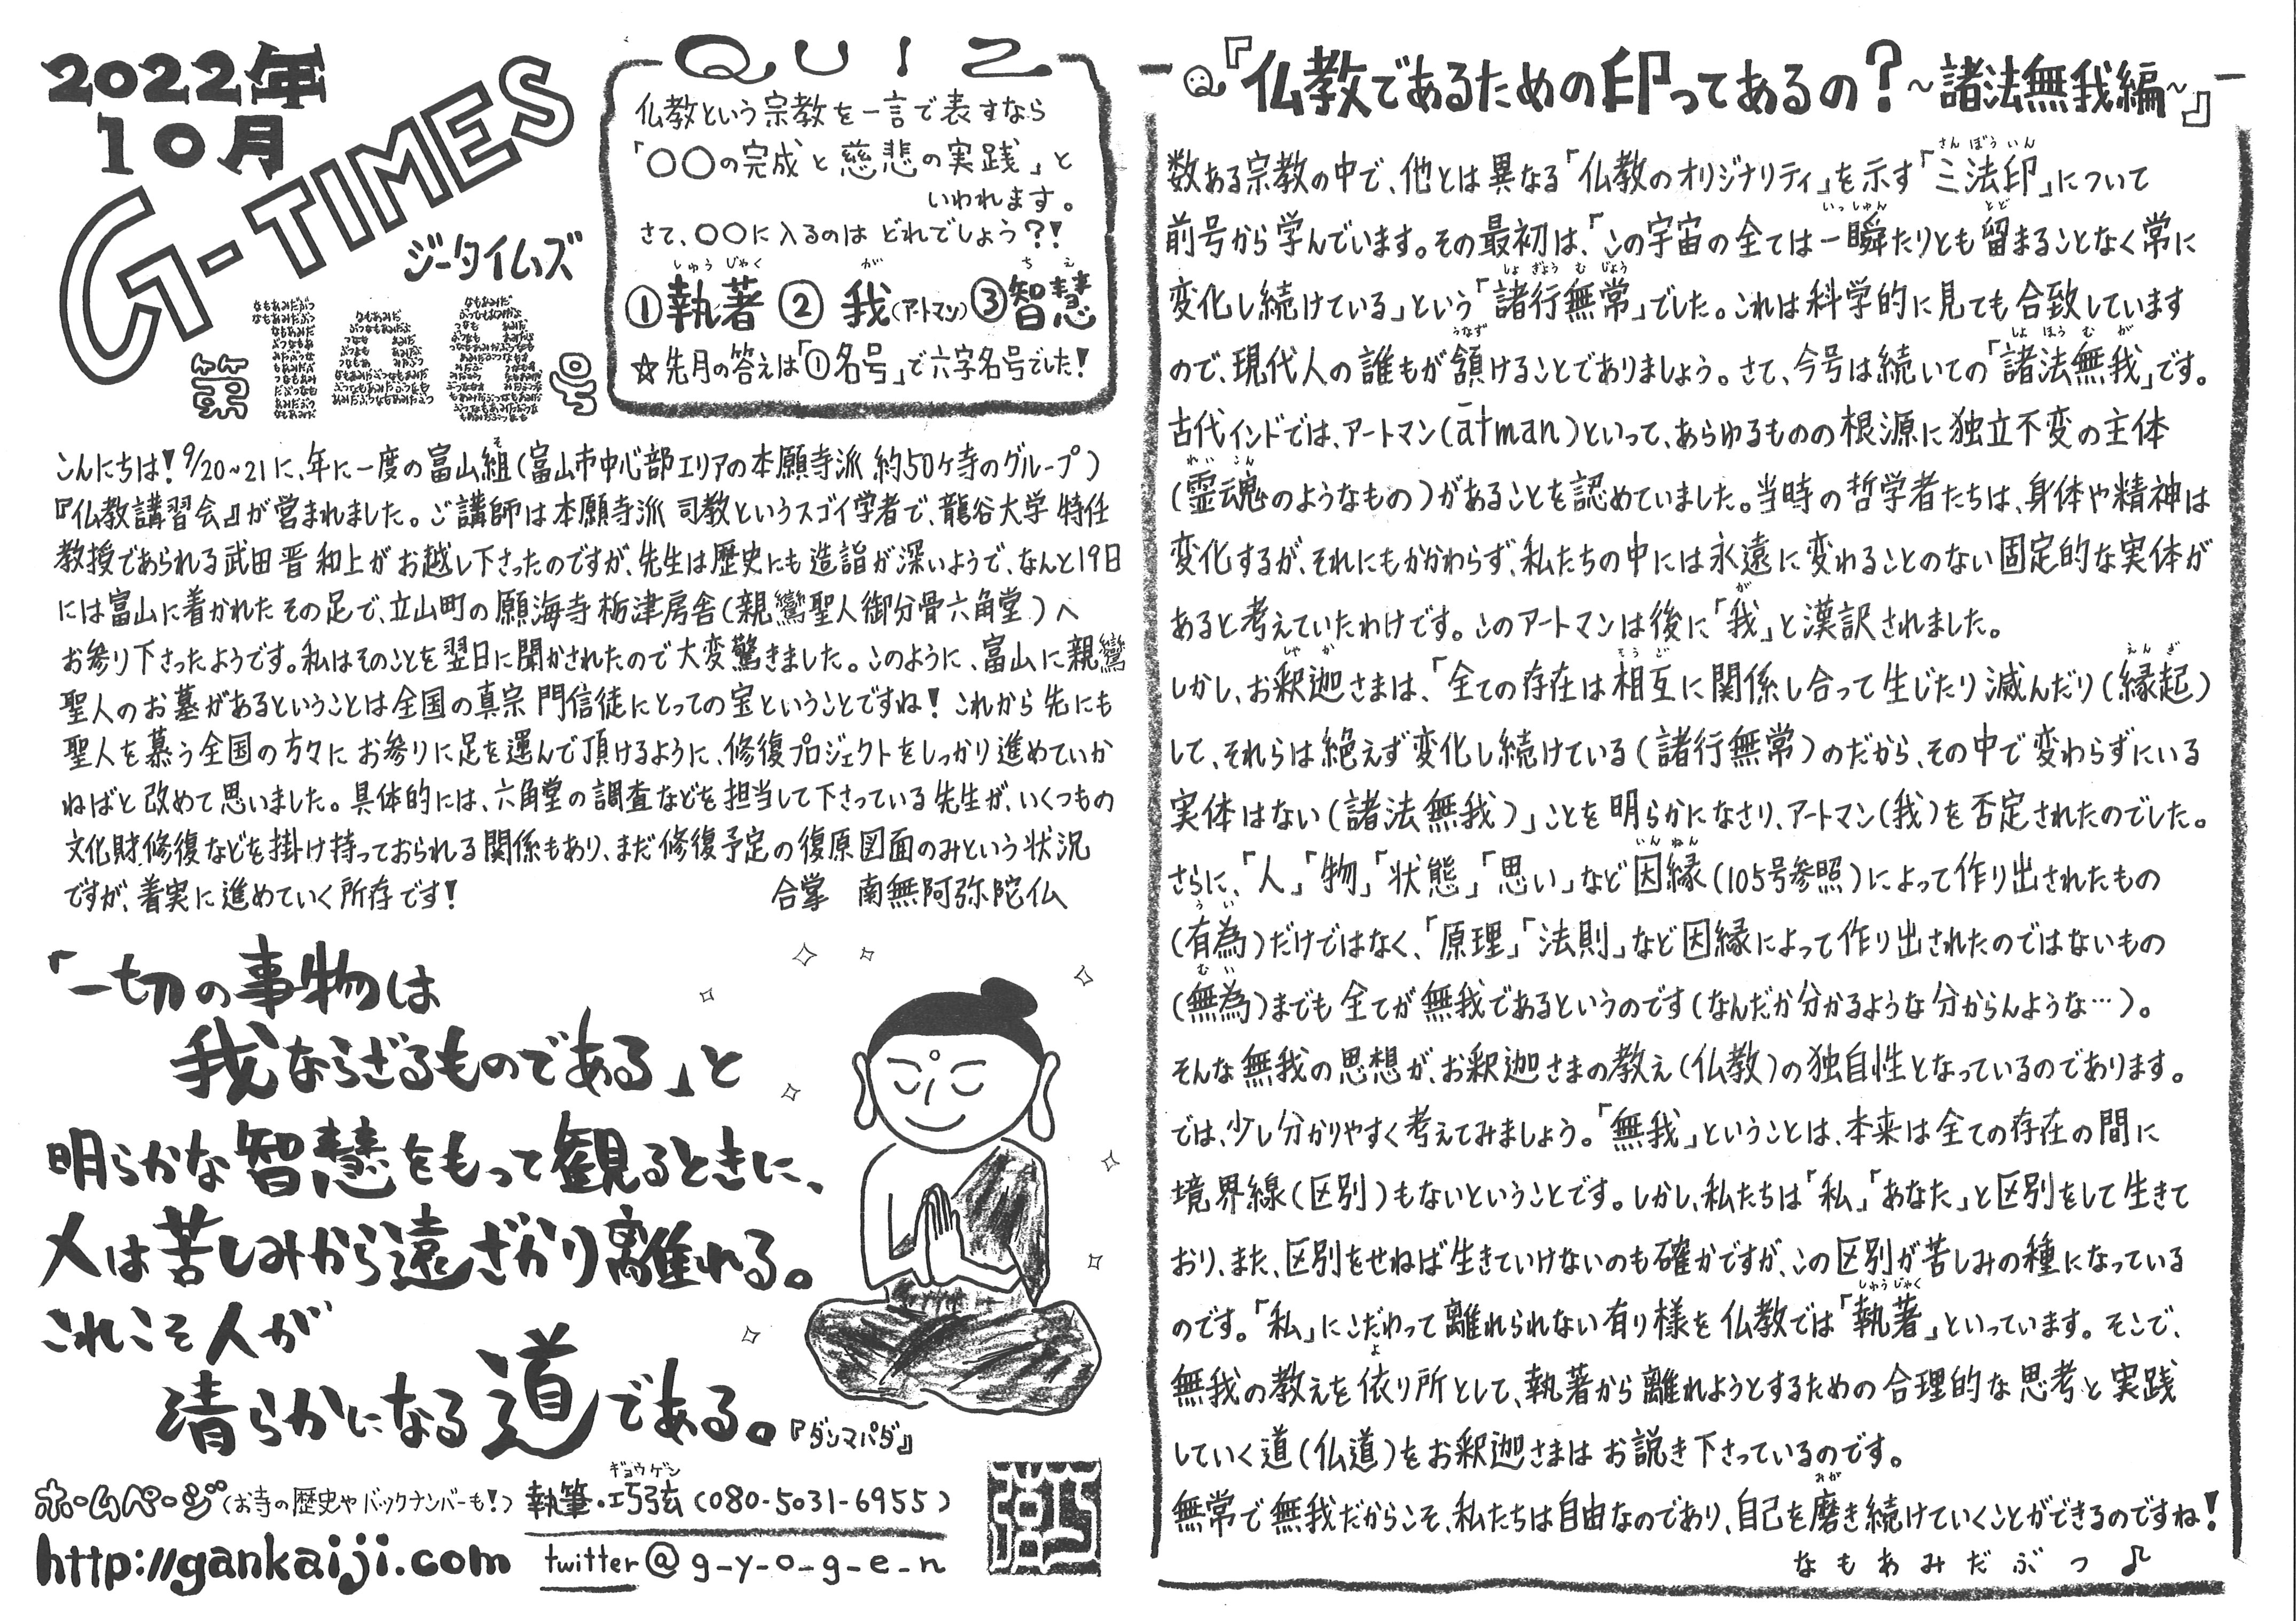 2022年
10月
G-TIMES
ジータイムズ
第106号
QUIZ
仏教という宗教を一言で表すなら
「〇〇の完成と慈悲の実践」と
いわれます。
さて、〇〇に入るのはどれでしょう?!
①執著(しゅうじゃく) ②我(が)(アートマン) ③智慧(ちえ)
☆先月の答えは「①名号」で六字名号でした!
こんにちは!9/20~21に、年に一度の富山組(そ)(富山市中心部エリアの本願寺派 約50ヶ寺のグループ)
『仏教講習会』が営まれました。ご講師は本願寺派 司教というスゴイ学者で、龍谷大学 特任
教授であられる武田 晋 和上がお越し下さったのですが、先生は歴史にも造詣が深いようで、なんと19日
には富山に着かれたその足で、立山町の願海寺 栃津房舎(親鸞聖人御分骨六角堂)へ
お参り下さったようです。私はそのことを翌日に聞かされたので大変驚きました。このように、富山に親鸞
聖人のお墓があるということは全国の真宗 門信徒にとっての宝ということですね! これから先にも
聖人を慕う全国の方々にお参りに足を運んで頂けるように、修復プロジェクトをしっかり進めていか
ねばと改めて思いました。具体的には、六角堂の調査などを担当して下さっている先生が、いくつもの
文化財修復などを掛け持っておられる関係もあり、まだ修復予定の復原図面のみという状況
ですが、着実に進めていく所存です! 合掌 南無阿弥陀仏
「一切の事物は
我ならざるものである」と
明らかな智慧をもって観るときに、
人は苦しみから遠ざかり離れる。
これこそ人が
清らかになる道である。『ダンマパダ』
ホームページ(お寺の歴史やバックナンバーも!) 執筆・巧弦(ギョウゲン)(080-5031-6955)
http://gankaiji.com twitter@g_y_o_g_e_n
Q『仏教であるための印ってあるの?~諸法無我編~』
数ある宗教の中で、他とは異なる「仏教のオリジナリティ」を示す「三法印(さんぼういん)」について
前号から学んでいます。その最初は、「この宇宙の全ては一瞬(いっしゅん)たりとも留(とど)まることなく常に
変化し続けている」という「諸行無常(しょぎょうむじょう)」でした。これは科学的に見ても合致しています
ので、現代人の誰もが頷(うなず)けることでありましょう。さて、今号は続いての「諸法無我(しょほうむが)」です。
古代インドでは、アートマン(ātman)といって、あらゆるものの根源に独立不変の主体
(霊魂(れいこん)のようなもの)があることを認めていました。当時の哲学者たちは、身体や精神は
変化するが、それにもかかわらず、私たちの中には永遠に変わることのない固定的な実体が
あると考えていたわけです。このアートマンは後に「我(が)」と漢訳されました。
しかし、お釈迦(しゃか)さまは、「全ての存在は相互(そうご)に関係し合って生じたり滅んだり(縁起(えんぎ))
して、それらは絶えず変化し続けている(諸行無常)のだから、その中で変わらずにいる
実体はない(諸法無我)」ことを明らかになさり、アートマン(我)を否定されたのでした。
さらに、「人」「物」「状態」「思い」など因縁(いんねん)(105号参照)によって作り出されたもの
(有為(うい))だけではなく、「原理」「法則」など因縁によって作り出されたのではないもの
(無為(むい))までも全てが無我であるというのです(なんだか分かるような分からんような…)。
そんな無我の思想が、お釈迦さまの教え(仏教)の独自性となっているのであります。
では、少し分かりやすく考えてみましょう。「無我」ということは、本来は全ての存在の間に
境界線(区別)もないということです。しかし、私たちは「私」「あなた」と区別をして生きて
おり、また、区別をせねば生きていけないのも確かですが、この区別が苦しみの種になっている
のです。「私」にこだわって離れられない有り様を仏教では「執著(しゅうじゃく)」といっています。そこで、
無我の教えを依(よ)り所として、執著から離れようとするための合理的な思考と実践
していく道(仏道)をお釈迦さまはお説き下さっているのです。
無常で無我だからこそ、私たちは自由なのであり、自己を磨(みが)き続けていくことができるのですね!
なもあみだぶつ♪